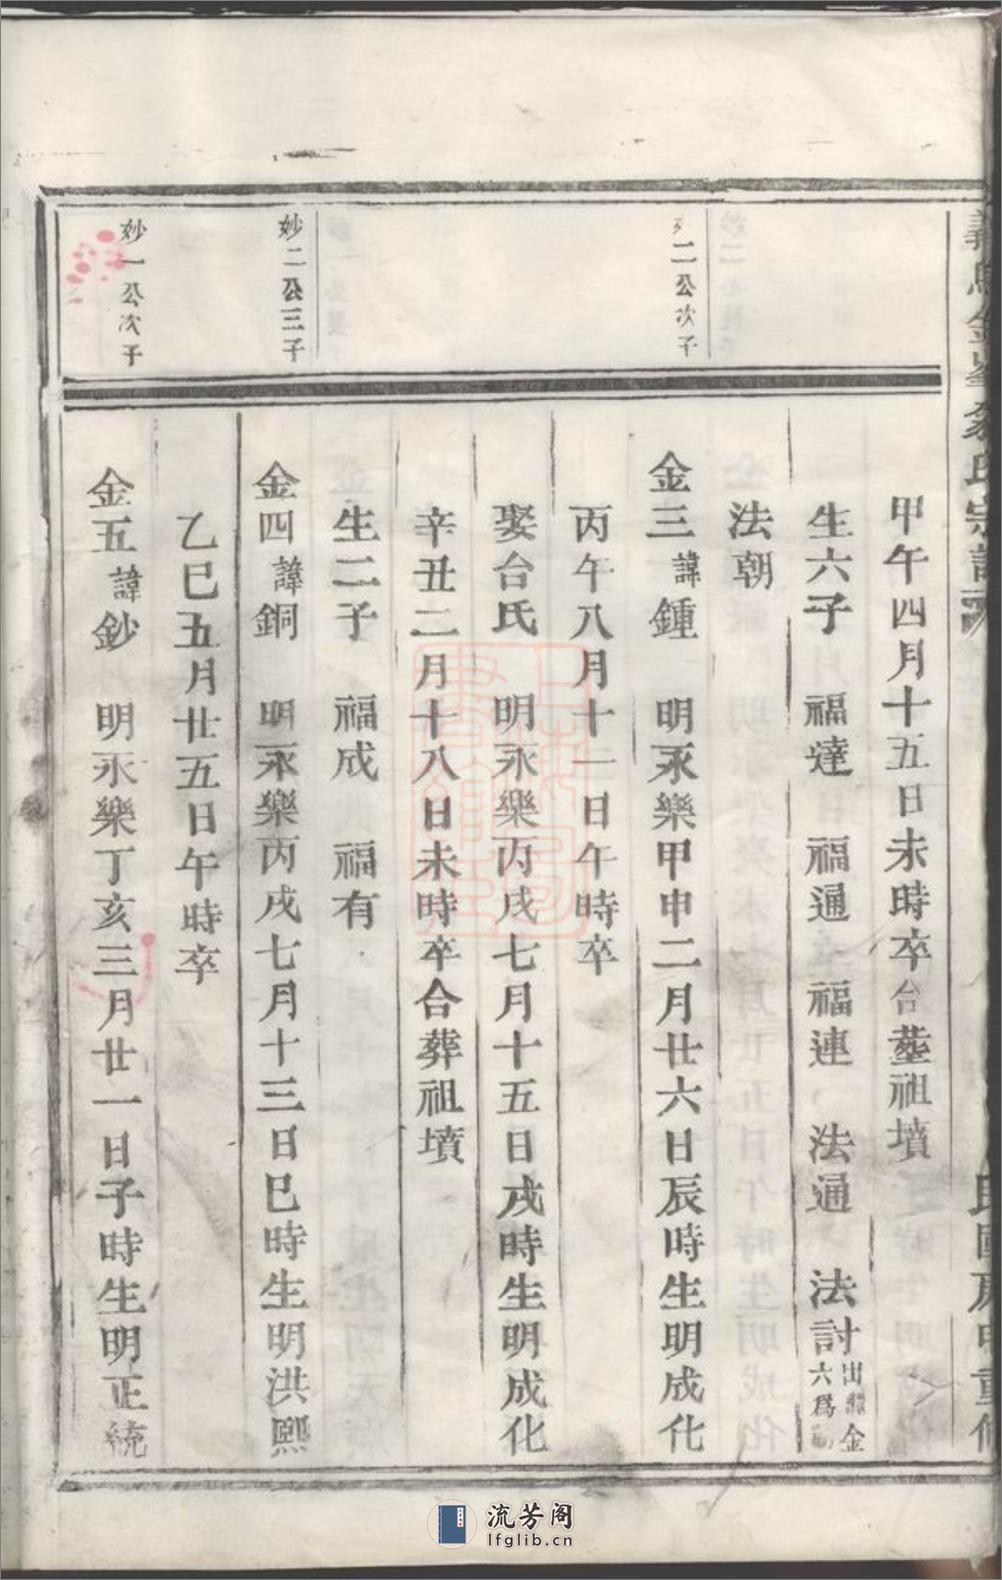 甲午四月十五日未時卒合塟祖墳
生六子　福達　福通　福連　法通　法討出繼金六爲
法朝
二公次子
金三諱鍾　明永樂甲申二月廿六日辰時生明成化
丙午八月十一日午時卒
娶台氏　明永樂丙戌七月十五日戌時生明成化
辛丑二月十八日未時卒合葬祖墳
生二子　福成　福有
妙二公三子
金四諱銅　明永樂丙戌七月十三日巳時生明洪熙
乙巳五月廿五日午時卒
妙一公次子
金五諱鈔　明永樂丁亥三月廿一日子時生明正統
流芳阁
lfglib.cn